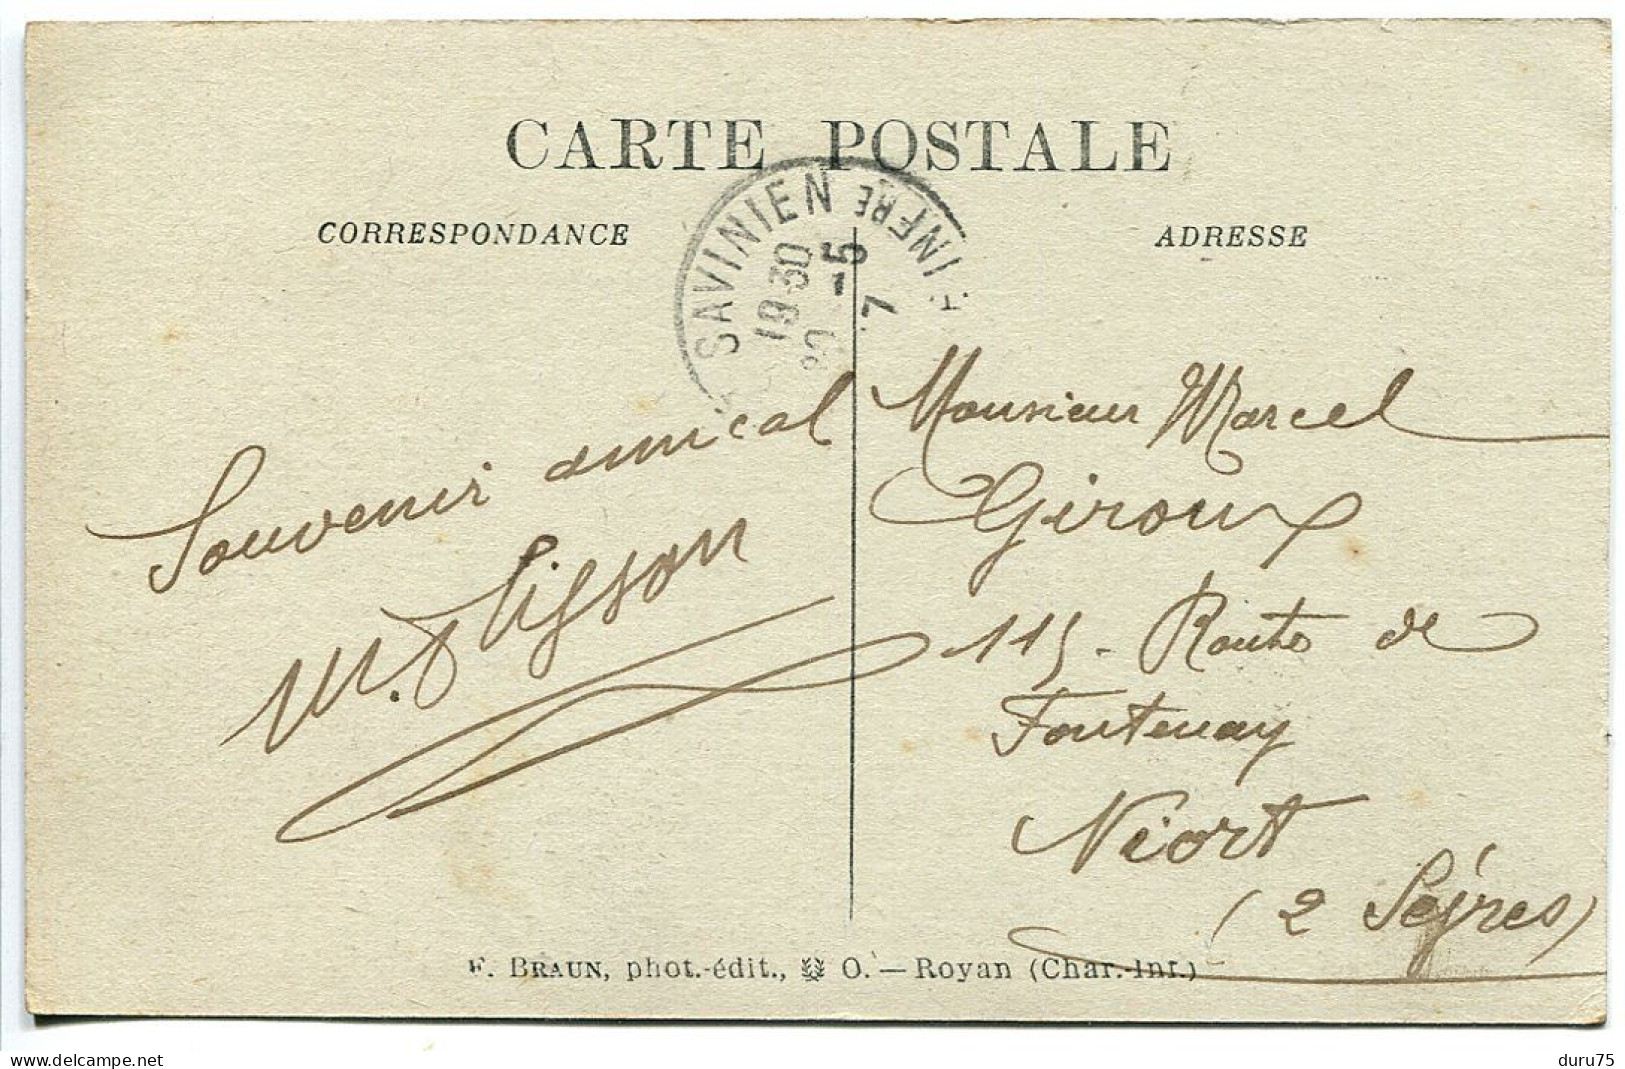 CARTE POSTALE
CORRESPONDANCE
ADRESSE
SAVINIEN
INFRE
19 30
-5
7
Souvenir amical
Monsieur Marcel
Giroux
115 - Route de
Fontenay
Niort
(2 Sèvres)
F. BRAUN, phot.-édit., O. — Royan (Char.-Inf.)
duru75